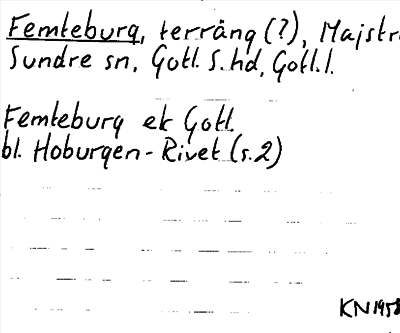 Femteburg, terräng (?), Majstr
Sundre sn, Gotl. S. hd, Gotl. l.
Femteburg ek Gotl.
bl. Hoburgen - Rivet (s. 2)
KN 1958